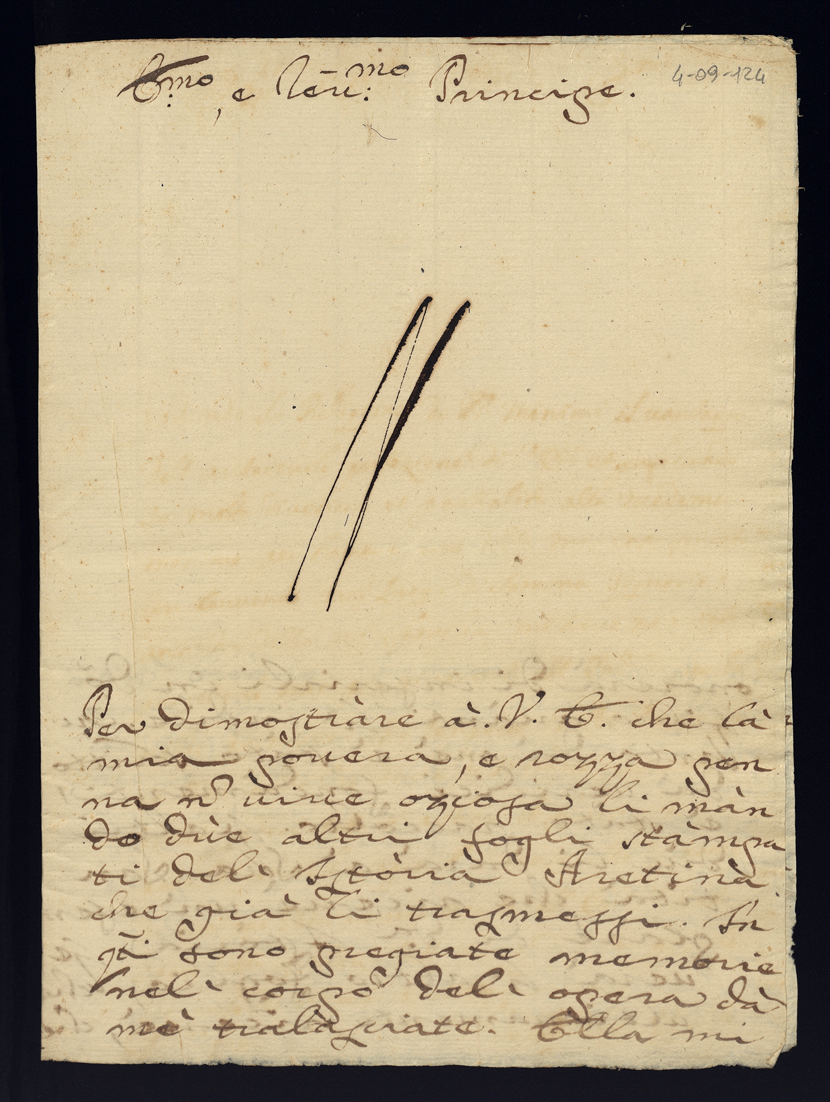 4-09-124
E.mo, e Rev.mo Principe.
Per dimostràre à. V. E. che là
mia povera, e rozza pen
na nō vive oziosa li màn
do dùe altri fogli stàmpa
ti delì Istòria Aretina
che già li trasmessi. In
qti sono pregiate memorie
nelì corpo delì opera dà
mè tralasciate. Ella mi